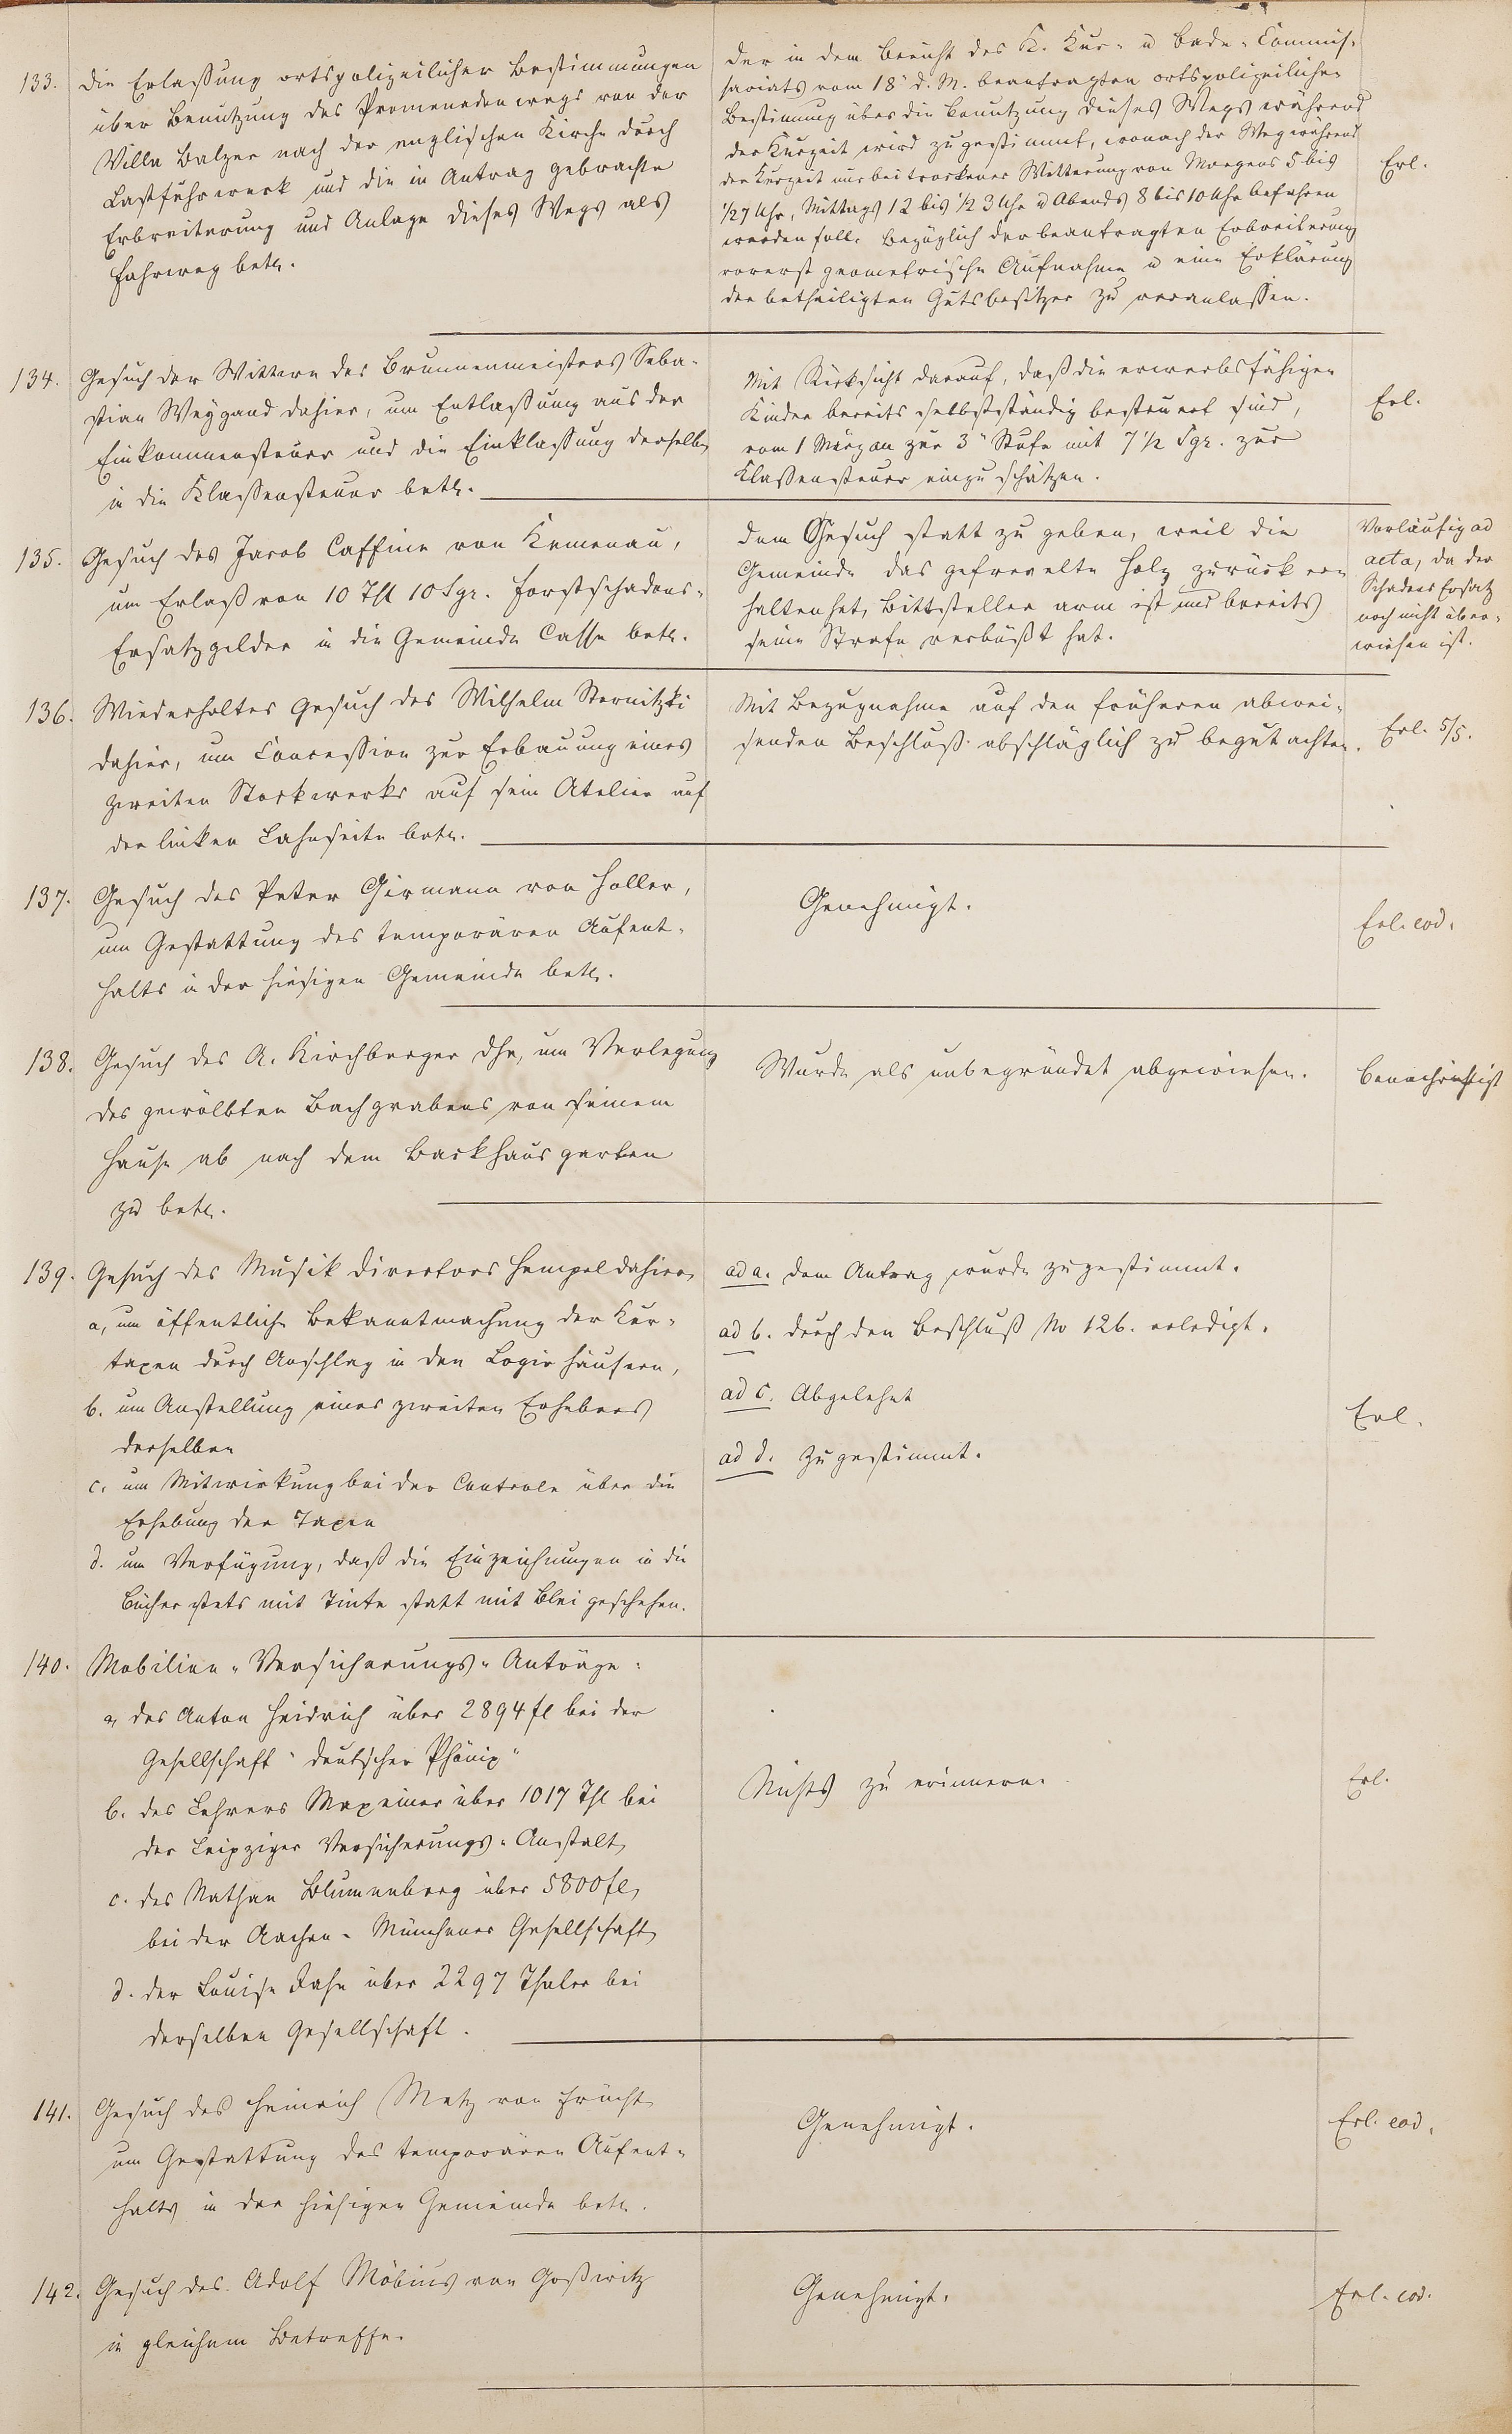 133.
die Erlaßung ortspolizeilicher Bestimmungen
über Benutzung des Promenadenwegs von der
Villa Balzer nach der englischen Kirche durch
Lastfuhrwerk und die in Antrag gebrachte
Erbreiterung und Anlage dieses Wegs als
Fahrweg betr.
Der in dem Bericht des K. Kur- u Bade-Commis-
sariats vom 18" d. M. beantragten ortspolizeilichen
Bestimmung über die Benutzung dieses Wegs während
der Kurzeit wird zugestimmt, wonach der Weg während
der Kurzeit nur bei trockener Witterung von Morgens 5 bis
1/27 Uhr, Mittags 12 bis 1/2 3 Uhr u Abends 8 bis 10 Uhr befahren
werden soll. Bezüglich der beantragten Erbreiterung
vorerst geometrische Aufnahme u eine Erklärung
der betheiligten Gutsbesitzer zu veranlaßen.
Erl.
134.
Gesuch der Wittwe des Brunnenmeisters Seba-
stian Weygand dahier, um Entlaßung aus der
Einkommensteuer und die Einklaßung derselben
in die Klaßensteuer betr.
Mit Rücksicht darauf, daß die erwerbsfähigen
Kinder bereits selbstständig besteuert sind,
vom 1 März an zur 3" Stufe mit 7 1/2 Sgr. zur
Klaßensteuer einzuschätzen.
Erl.
135.
Gesuch des Jacob Caffine von Kemenau,
um Erlaß von 10 Thl 10 Sgr. Forstschadens-
Ersatzgelder in die Gemeinde Casse betr.
Dem Gesuch statt zu geben, weil die
Gemeinde das gefrevelte Holz zurück er-
halten hat, Bittsteller arm ist und bereits
seine Strafe verbüßt hat.
Vorläufig ad
acta, da der
Schadens Ersatz
noch nicht über-
wiesen ist.
136.
Wiederholtes Gesuch des Wilhelm Sternitzki
dahier, um Concession zur Erbauung eines
zweiten Stockwerks auf sein Atelier auf
der linken Lahnseite betr.
Mit Bezugnahme auf den früheren abwei-
senden Beschluß abschläglich zu begutachten.
Erl. 5/5.
137.
Gesuch des Peter Girmann von Holler,
um Gestattung des temporären Aufent-
halts in der hiesigen Gemeinde betr.
Genehmigt.
Erl. eod.
138.
Gesuch des A. Kirchberger dhr, um Verlegung
des gewölbten Bachgrabens von seinem
Hause ab nach dem Backhausgarten
zu betr.
Wurde als unbegründet abgewiesen.
Benachrichtigt
139.
Gesuch des Musik Directors Hempel dahier
a, um öffentliche Bekanntmachung der Kur-
taxen durch Anschlag in den Logirhäusern,
b. um Anstellung eines zweiten Erhebers
derselben
c. um Mitwirkung bei der Controle über die
Erhebung der Taxen
d. um Verfügung, daß die Einzeichnungen in die
Bücher stets mit Tinte statt mit Blei geschehen.
ad a. dem Antrag wurde zugestimmt.
ad b. durch den Beschluß No 126. erledigt.
ad c. Abgelehnt
ad d. Zugestimmt.
Erl.
140.
Mobilien-Versicherungs-Anträge:
a, des Anton Heidrich über 2894 fl bei der
Gesellschaft "deutscher Phönix"
b. des Lehrers Maxeiner über 1017 Thl bei
der Leipziger Versicherungs-Anstalt,
c. des Nathan Blumenberg über 5800 fl,
bei der Aachen-Münchener Gesellschaft,
d. der Louise Jahn über 2297 Thaler bei
derselben Gesellschaft.
Nichts zu erinnern.
Erl.
141.
Gesuch des Heinrich Metz von Frücht
um Gestattung des temporären Aufent-
halts in der hiesigen Gemeinde betr.
Genehmigt.
Erl. eod.
142.
Gesuch des Adolf Möbius von Goßwitz
in gleichem Betreffe.
Genehmigt.
Erl. eod.